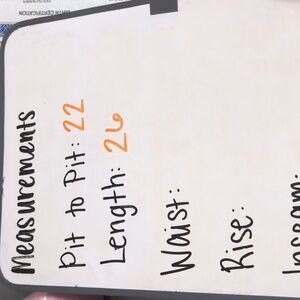 Measurements
Pit to Pit: 22
Length: 26
Waist:
Rise:
Inseam:
BIRTH CERTIFICATION